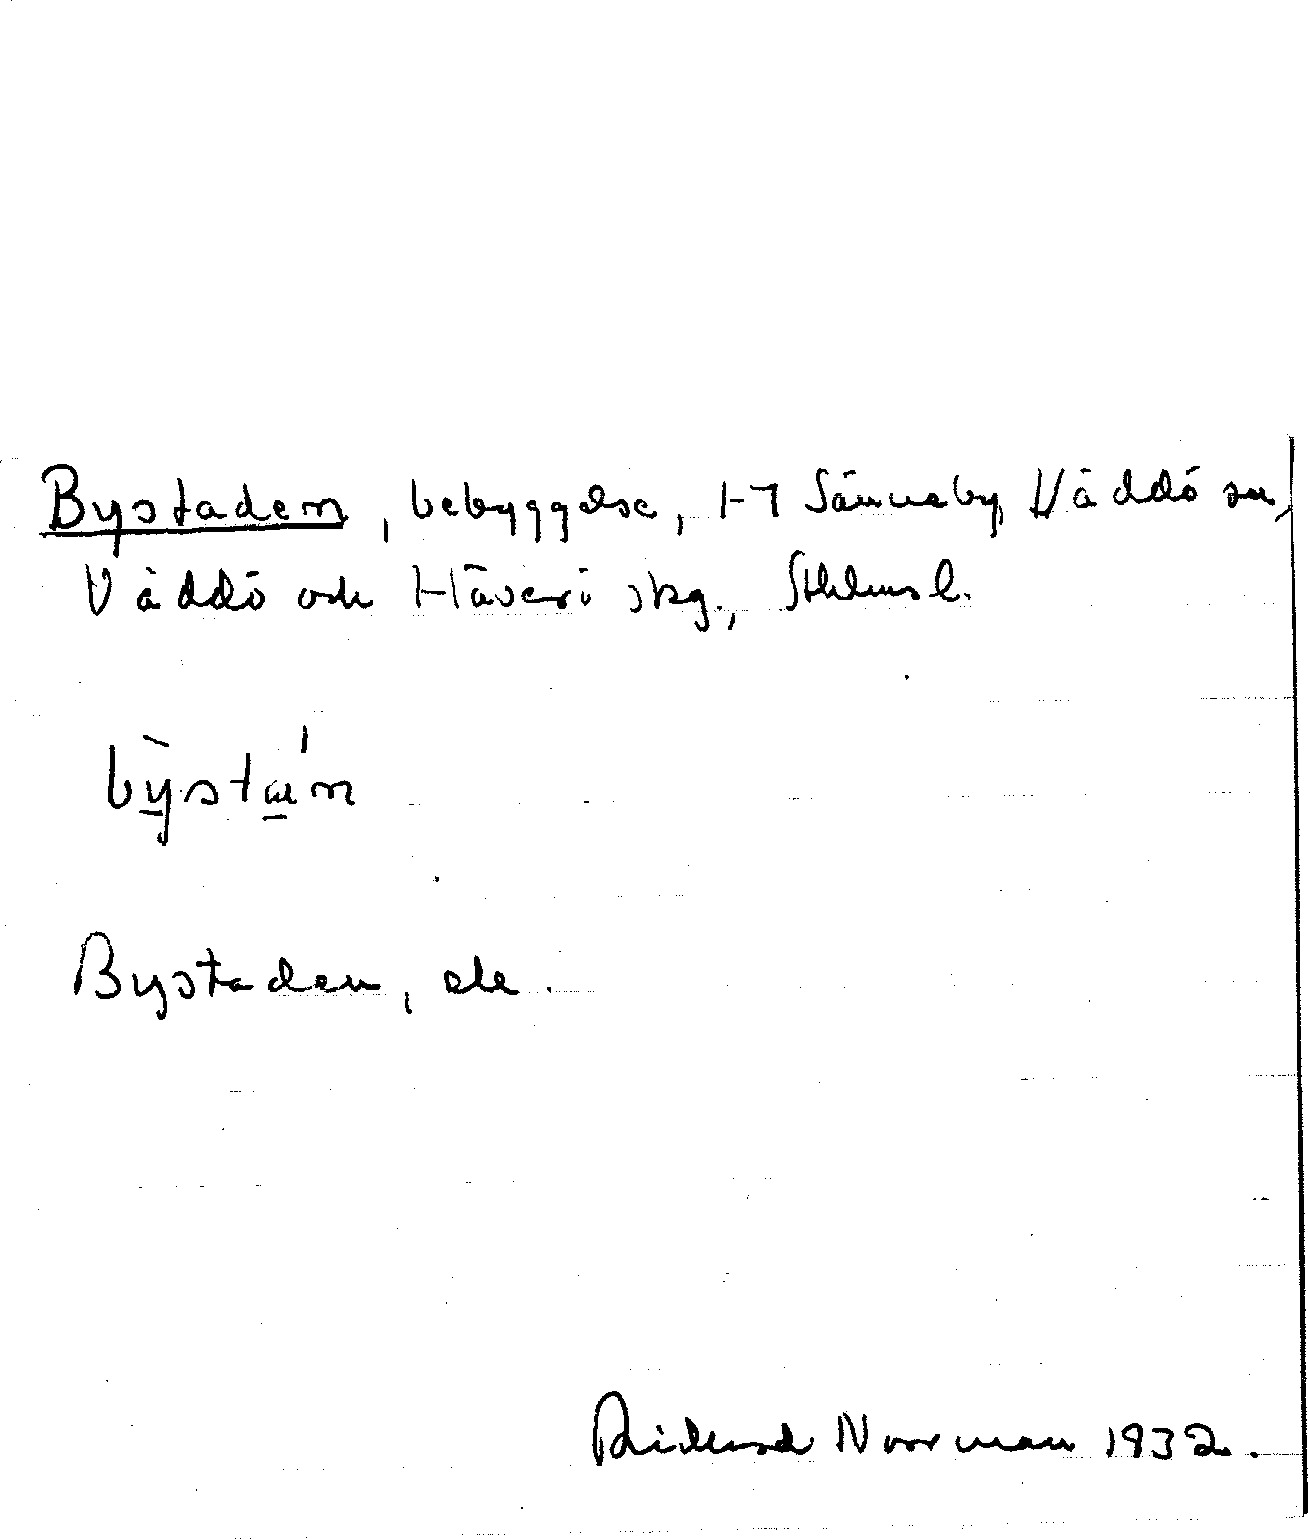 Bystaden, bebyggelse, 1-7 Sänneby, Väddö sn,
Väddö och Häverö skg., Sthlms l.
Bystaden, ele.
Rickard Norrman 1932.